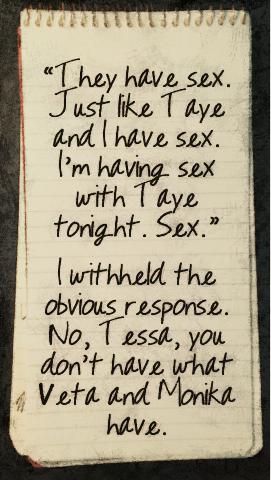 “They have sex.
Just like Taye
and I have sex.
I'm having sex
with Taye
tonight. Sex.”
I withheld the
obvious response.
No, Tessa, you
don't have what
Veta and Monika
have.